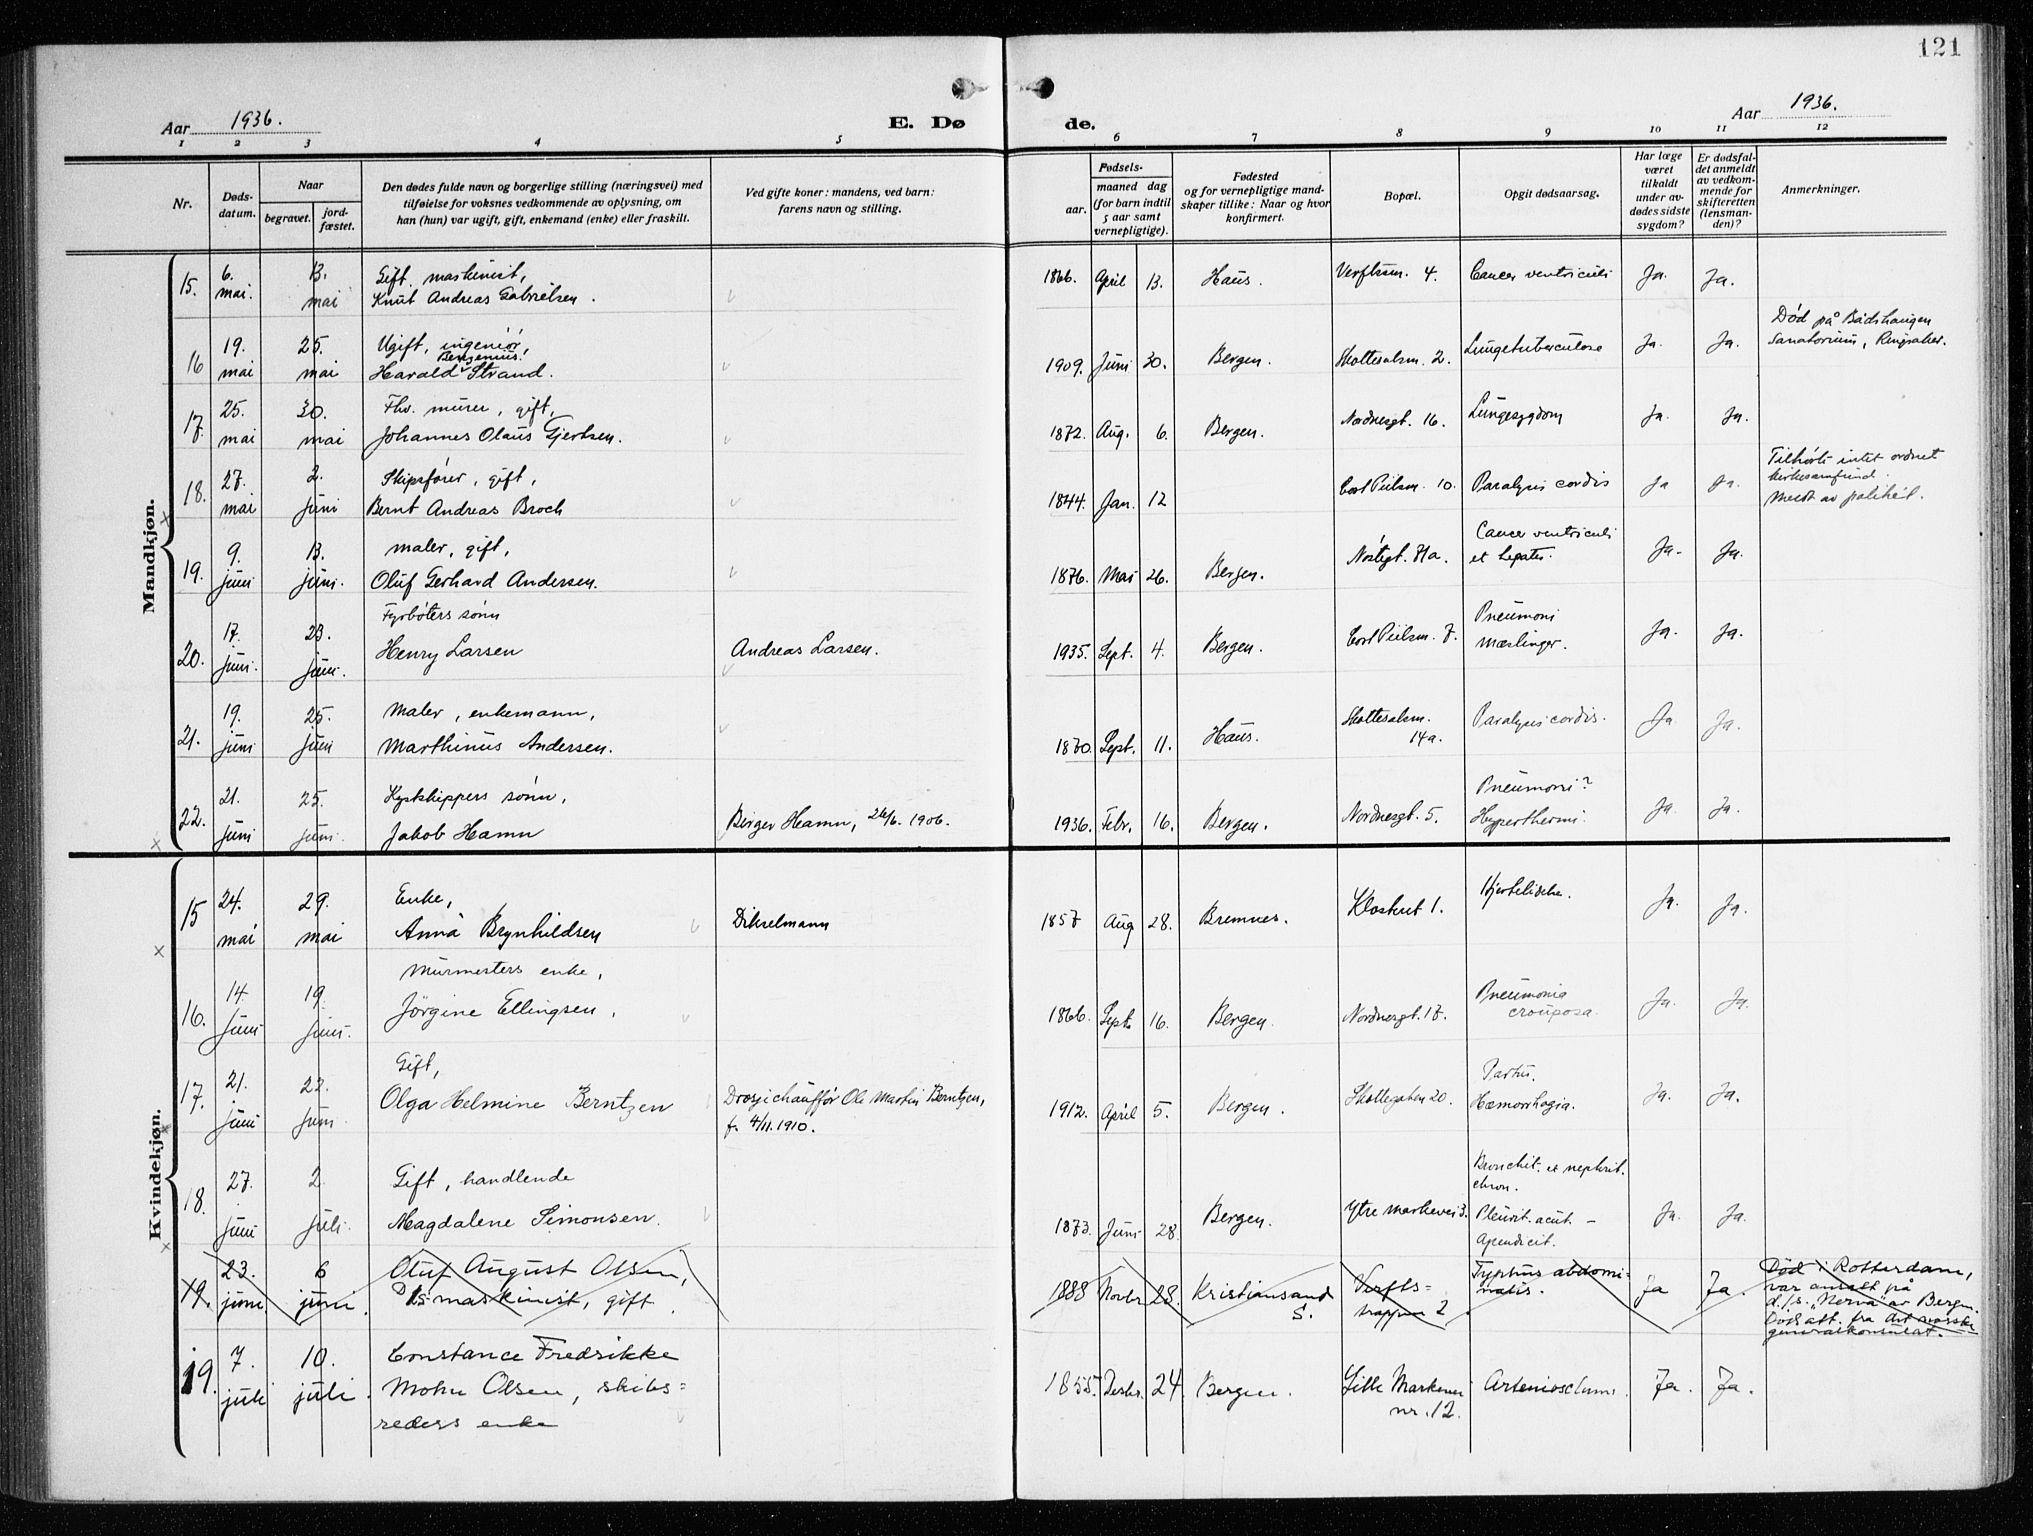 121
Aar 1936.
E. Dø de.
Aar 1936.
1 2 3 4 5 6 7 8 9 10 11 12
Nr.
Døds-
datum.
Naar
begravet.
jord-
fæstet.
Den dødes fulde navn og borgerlige stilling (næringsvei) med
tilføielse for voksnes vedkommende av oplysning, om
han (hun) var ugift, gift, enkemand (enke) eller fraskilt.
Ved gifte koner: mandens, ved barn:
farens navn og stilling.
Fødsels-
aar.
maaned dag
(for barn indtil
5 aar samt
vernepligtige).
Fødested
og for vernepligtige mand-
skaper tillike: Naar og hvor
konfirmert.
Bopæl.
Opgit dødsaarsag.
Har læge
været
tilkaldt
under av-
dødes sidste
sygdom?
Er dødsfal-
det anmeldt
av vedkom-
mende for
skifteretten
(lensman-
den)?
Anmerkninger.
Mandkjøn.
15. 6. mai. 13. mai
Gift, maskinist,
Knut Andreas Gabrielsen.
1866. April 13. Haus. Verftsm. 4. Cancer ventriculi Ja. Ja.
16 19. mai 25. mai
Ugift, ingeniör,
Benjamin
Harald Strand.
1909. Juni 30. Bergen. Skottesalsm. 2. Lungetuberculose Ja. Ja.
Död på
Sanatorium, Ringsaker.
17. 25. mai 30. mai
Fhv. murer, gift,
Johannes Olaus Gjertsen.
1872. Aug. 6. Bergen. Nordnesgt. 16. Lungesygdom Ja. Ja.
18. 27. mai 2. juni
Skipsfører, gift,
Bernt Andreas Broch
1844. Jan. 12 Cort Piilsm. 10. Paralysis cordis Ja Ja.
Tilhörte intet ordnet
kirkesamfund.
19. 9. juni 13. juni.
Maler, gift,
Oluf Gerhard Andersen.
1876. Mai 26. Bergen. Nöstegt. 81a.
Cancer ventriculi
et hepatis. Ja. Ja.
20. 17. juni. 23. juni.
Fyrböters sönn
Henry Larsen
Andreas Larsen.
1935. Sept. 4. Bergen. Cort Piilsm. 7.
Pneumoni
mæslinger. Ja. Ja.
21. 19. juni 25. juni
Maler, enkemann,
Marthinus Andersen.
1870. Sept. 11. Haus. Skottesalsm.
14a. Paralysis cordis. Ja. Ja.
22. 21. juni 25. juni.
Kystskippers sönn,
Jakob Hamn
Birger Hamn, 26/6. 1906.
1936. Febr. 16. Bergen. Nordnesgt. 5.
Pneumoni?
Hyperthermi. Ja. Ja.
Kvindekjøn.
15 24. mai 29. mai
Enke,
Anna Brynhildsen
Dikselmann
1857 Aug 28. Bremnes. Klosteret 1. Hjertelidelse. Ja. Ja.
16. 14. juni 19. juni.
Murmesters enke,
Jörgine Ellingsen,
1866. Sept. 16. Bergen. Nordnesgt. 17.
Pneumonia
crouposa. Ja. Ja.
17. 21. juni 22. juni.
Gift,
Olga Helmine Berntzen
Drosjechauffør Ole Martin Berntzen,
f. 4/11. 1910.
1912. April 5. Bergen. Skottegaten 20.
Partus.
Hæmorrhagia. Ja. Ja.
18. 27. juni 2. juli.
Gift, handlende
Magdalene Simonsen.
1873. Juni 28. Bergen. Ytre markevei 3.
Bronchit. et nephrit.
chron.
Pleurit. acut. –
Apendicit. Ja. Ja.
19. 23. juni. 6 juni.
Oluf August Olsen,
maskinist, gift.
1888 Novbr 28. Kristiansand
S. Verfts=
trappen 2
Typhus abdomi=
nalis. Ja Ja.
Död i Rotterdam,
var ansatt på
d/s. "Nerva" av Bergen.
generalkonsulat.
19. 7. juli 10. juli.
Constance Fredrikke
Mohn Olsen, skibs=
reders enke
1855. Desbr. 24. Bergen. Lille Markevei
nr. 12. Ja. Ja.